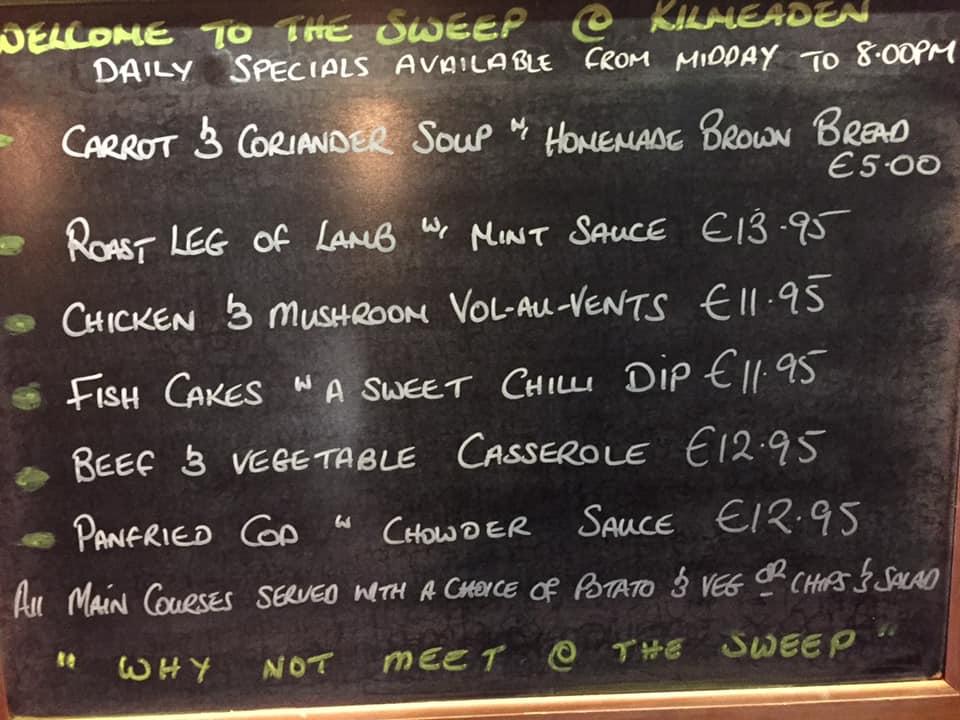 WELLCOME TO THE SWEEP @ KILMEADEN
DAILY SPECIALS AVAILABLE FROM MIDDAY TO 8.00PM
CARROT & CORIANDER SOUP W/ HOMEMADE BROWN BREAD
€5.00
ROAST LEG OF LAMB W/ MINT SAUCE €13.95
CHICKEN & MUSHROOM VOL-AU-VENTS €11.95
FISH CAKES W A SWEET CHILLI DIP €11.95
BEEF & VEGETABLE CASSEROLE €12.95
PANFRIED COD W CHOWDER SAUCE €12.95
All MAIN COURSES SERVED WITH A CHOICE OF POTATO & VEG OR CHIPS & SALAD
"WHY NOT MEET @ THE SWEEP"